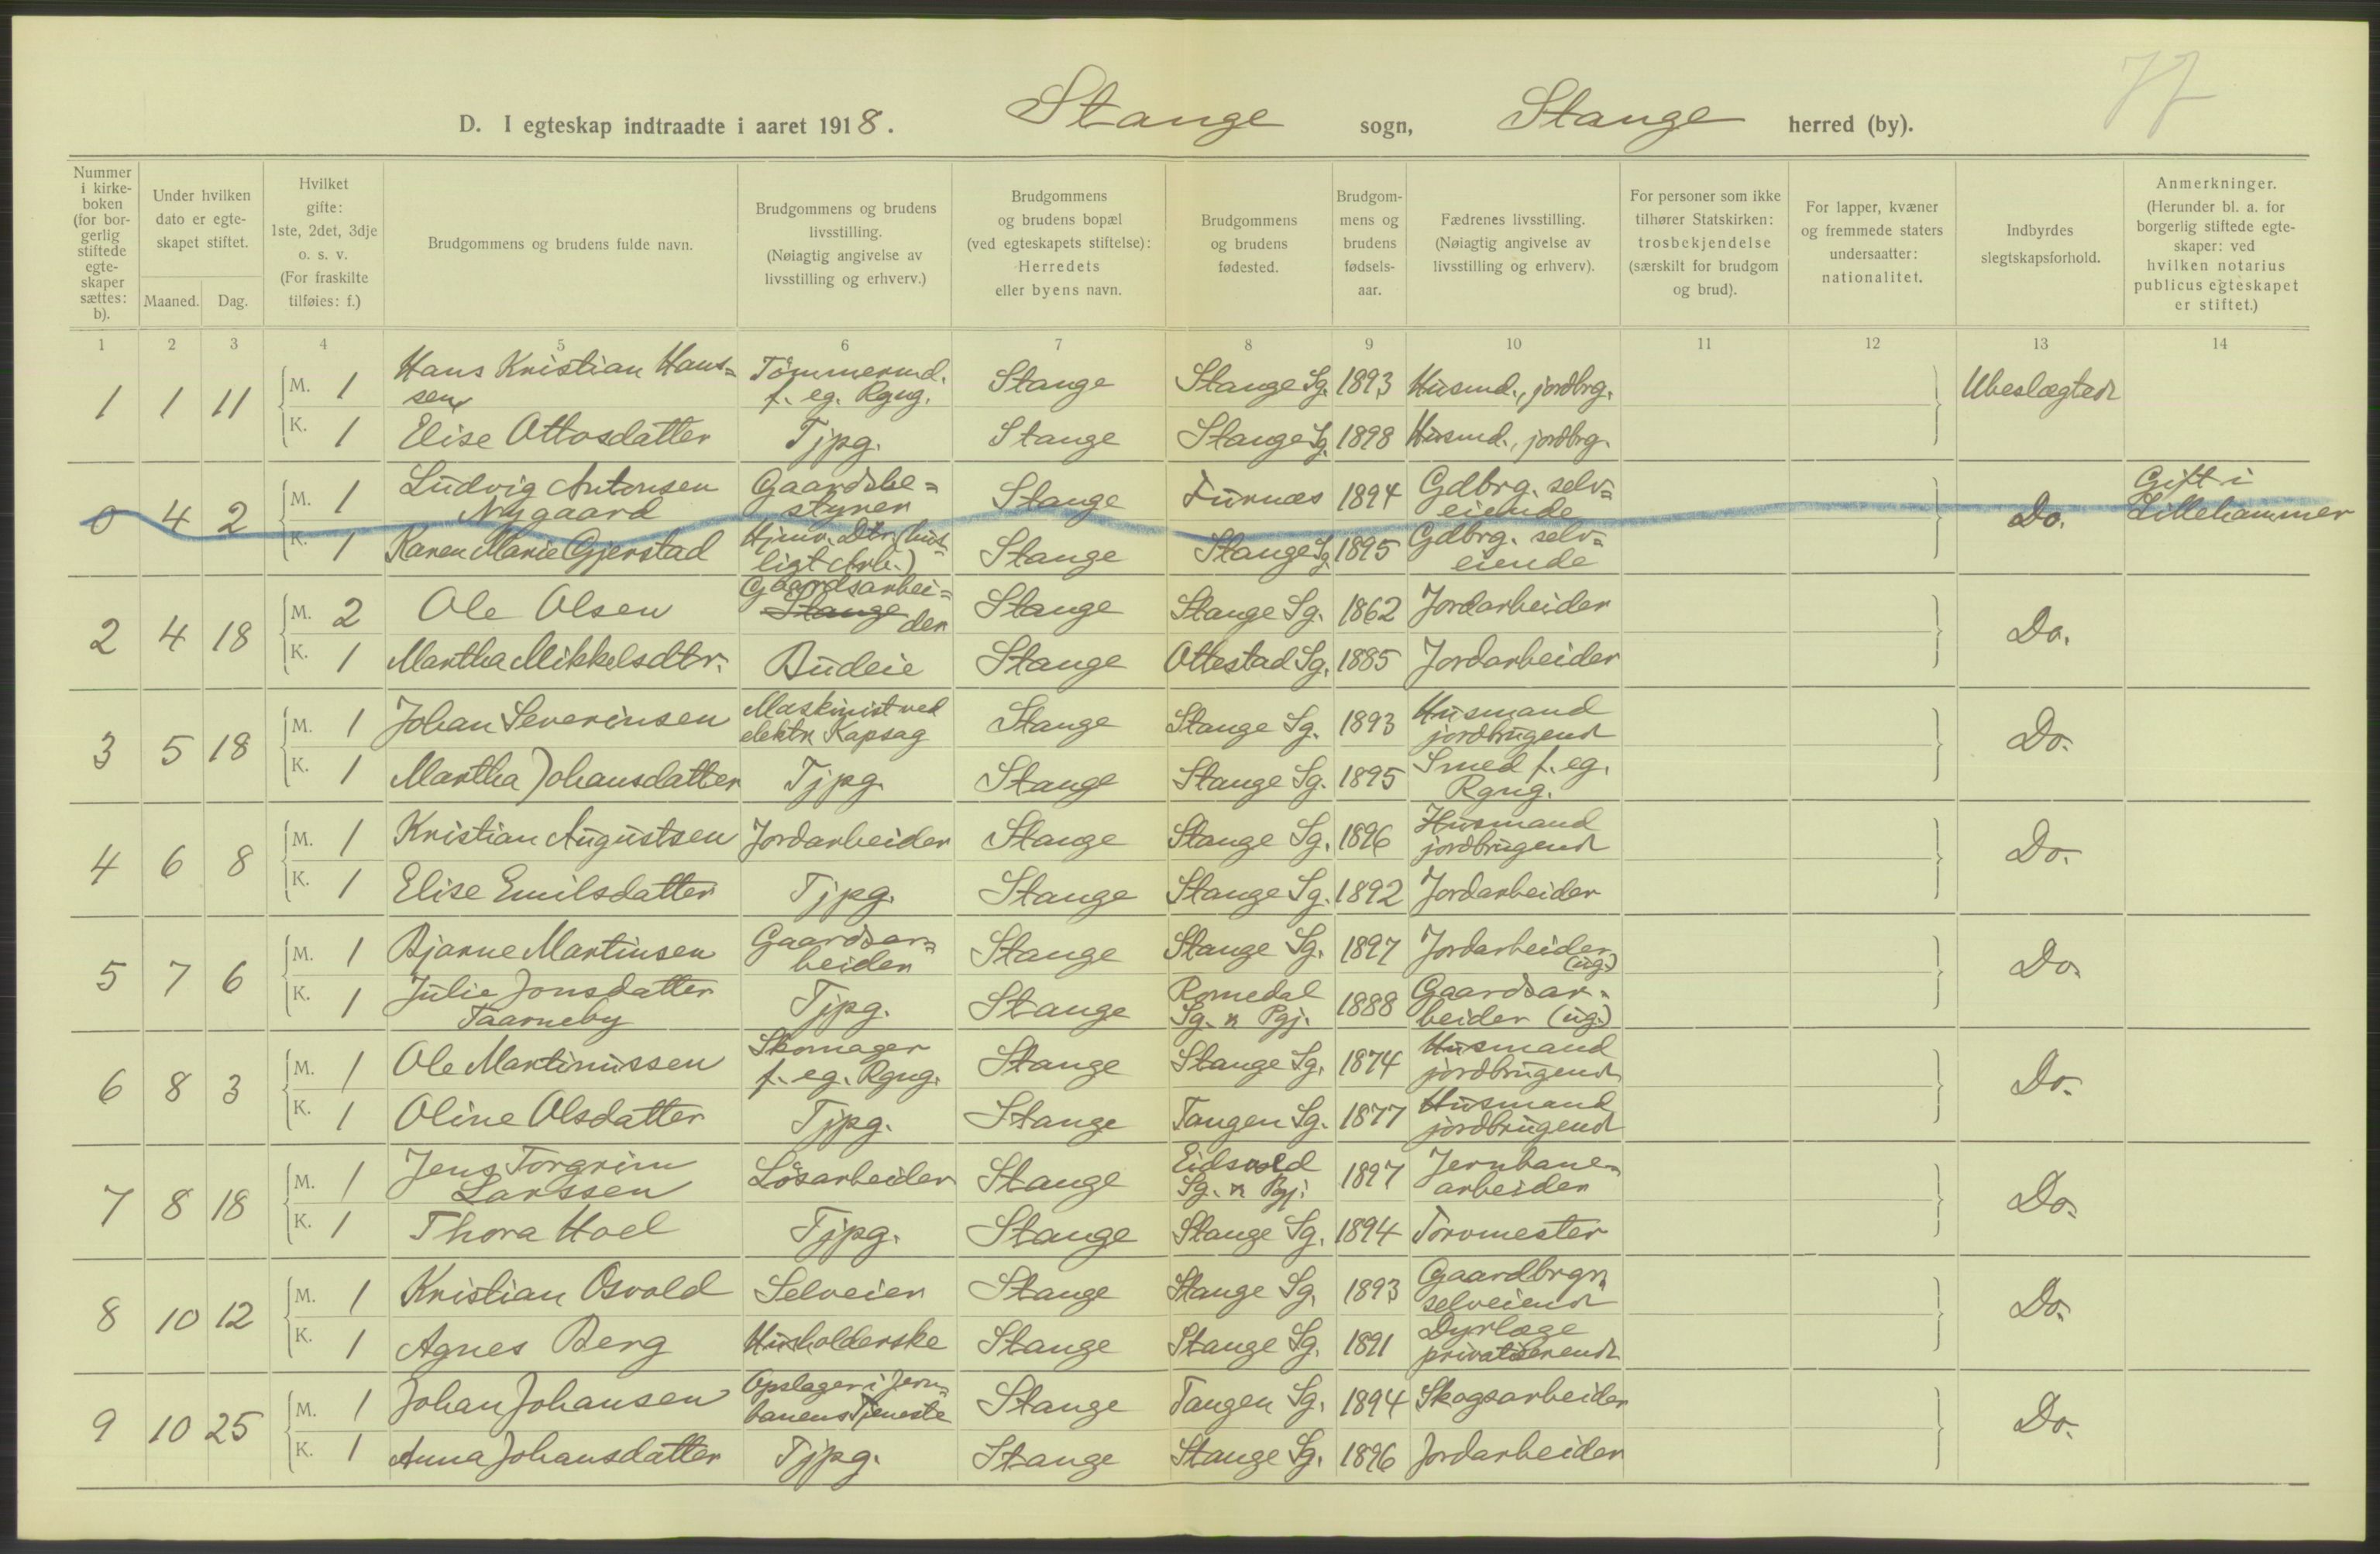 77
D. I egteskap indtraadte i aaret 1918. Stange sogn, Stange herred (by).
Nummer i kirke-boken (for bor-gerlig stiftede egte-skaper sættes: b).
Under hvilken dato er egte-skapet stiftet.
Maaned. Dag.
Hvilket gifte: 1ste, 2det, 3dje o. s. v. (For fraskilte tilføies: f.)
Brudgommens og brudens fulde navn.
Brudgommens og brudens livsstilling. (Nøiagtig angivelse av livsstilling og erhverv.)
Brudgommens og brudens bopæl (ved egteskapets stiftelse): Herredets eller byens navn.
Brudgommens og brudens fødested.
Brudgom-mens og brudens fødsels-aar.
Fædrenes livsstilling. (Nøiagtig angivelse av livsstilling og erhverv).
For personer som ikke tilhører Statskirken: trosbekjendelse (særskilt for brudgom og brud).
For lapper, kvæner og fremmede staters undersaatter: nationalitet.
Indbyrdes slegtskapsforhold.
Anmerkninger. (Herunder bl. a. for borgerlig stiftede egte-skaper: ved hvilken notarius publicus egteskapet er stiftet.)
1 2 3 4 5 6 7 8 9 10 11 12 13 14
1 1 11 M. 1 Hans Kristian Hans=sen Tömmermd. f. eg. Rgng. Stange Stange Sg. 1893 Husmd., jordbrg. Ubeslægted
K. 1 Elise Ottosdatter Tjpg. Stange Stange Sg. 1898 Husmd., jordbrg.
0 4 2 M. 1 Ludvig Antonsen Nygaard Gaardsbe=styrer Stange Furnæs 1894 Gdbrg. selv=eiende Do. Gift i Lillehammer
K. 1 Karen Marie Gjerstad Hjemv. Dtr. (hus=ligt Arb.) Stange Stange Sg. 1895 Gdbrg. selv=eiende
2 4 18 M. 2 Ole Olsen Gaardsarbei=Stange der Stange Stange Sg. 1862 Jordarbeider Do.
K. 1 Martha Mikkelsdtr. Budeie Stange Ottestad Sg. 1885 Jordarbeider
3 5 18 M. 1 Johan Severinsen Maskinist ved elektr Kapsag Stange Stange Sg. 1893 Husmand jordbrugend Do.
K. 1 Martha Johansdatter Tjpg. Stange Stange Sg. 1895 Smed f. eg. Rgng.
4 6 8 M. 1 Kristian Augustsen Jordarbeider Stange Stange Sg. 1896 Husmand jordbrugend Do.
K. 1 Elise Emilsdatter Tjpg. Stange Stange Sg. 1892 Jordarbeider
5 7 6 M. 1 Bjarne Martinsen Gaardsar=beider Stange Stange Sg. 1897 Jordarbeider (ug.) Do.
K. 1 Julie Jonsdatter Taarneby Tjpg. Stange Romedal Sg. n Pgj. 1888 Gaardsar=beider (ug.)
6 8 3 M. 1 Ole Martinussen Skomager f. eg. Rgng. Stange Stange Sg. 1874 Husmand jordbrugend Do.
K. 1 Oline Olsdatter Tjpg. Stange Tangen Sg. 1877 Husmand jordbrugend
7 8 18 M. 1 Jens Torgrim Larssen Løsarbeider Stange Eidsvold Sg. n Pgj. 1897 Jernbane=arbeider Do.
K. 1 Thora Hoel Tjpg. Stange Stange Sg. 1894 Torvmester
8 10 12 M. 1 Kristian Osvold Selveier Stange Stange Sg. 1893 Gaardbrgr. selveiend Do.
K. 1 Agnes Berg Husholderske Stange Stange Sg. 1891 Dyrlæge privatiserend
9 10 25 M. 1 Johan Johansen Opslager i Jern=banens Tjeneste Stange Tangen Sg. 1894 Skogsarbeider Do.
K. 1 Anna Johansdatter Tjpg. Stange Stange Sg. 1896 Jordarbeider